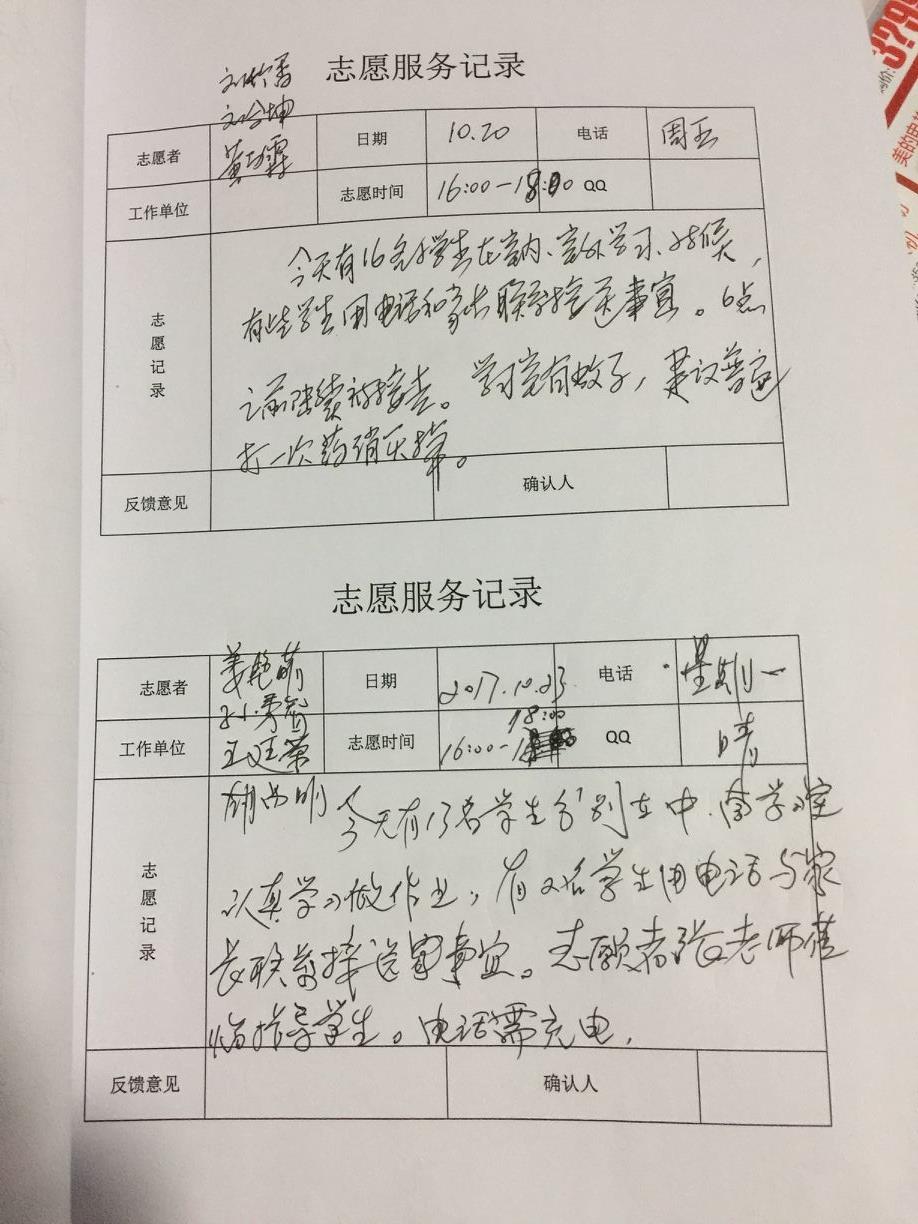 志愿服务记录
志愿者 日期 10.20 电话 周五
工作单位 志愿时间 16:00-18:00 QQ
志愿记录
今天有16名学生在室内、室外学习、对候,
有些学生用电话和家长联系接送事宜。6点
之前陆续被接走。学习室有蚊子,建议普遍
打一次药消灭掉。
反馈意见 确认人
志愿服务记录
志愿者 姜艳萌 日期 2017.10.23 电话 星期一
工作单位 王廷荣 志愿时间 16:00-18:00 QQ 晴
志愿记录
胡尚明 今天有13名学生分别在中、南学习室
认真学习做作业,有2名学生用电话与家
长联系接送事宜。志愿者张老师莅
临指导学生。电话需充电.
反馈意见 确认人
美的电